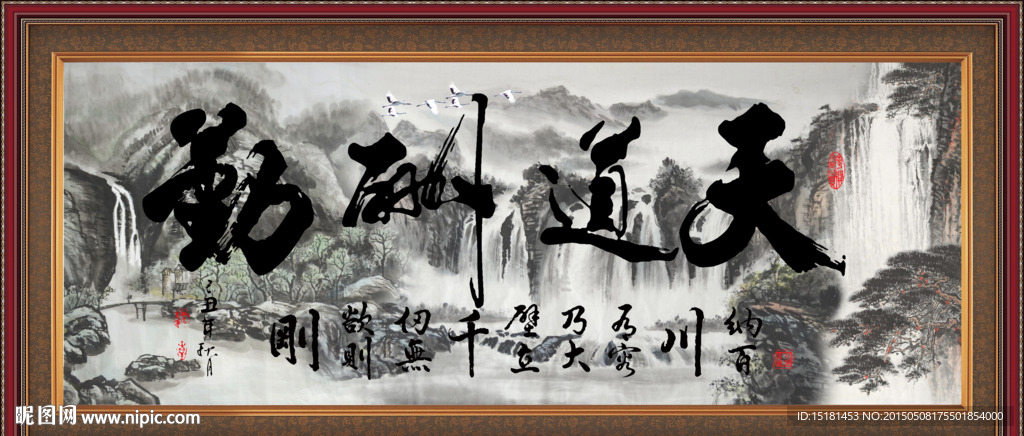 天道酬勤
纳百
川
有容
乃大
壁立
千
仞無
欲則
剛
己丑年秋月
昵图网 www.nipic.com
ID:15181453 NO:20150508175501854000